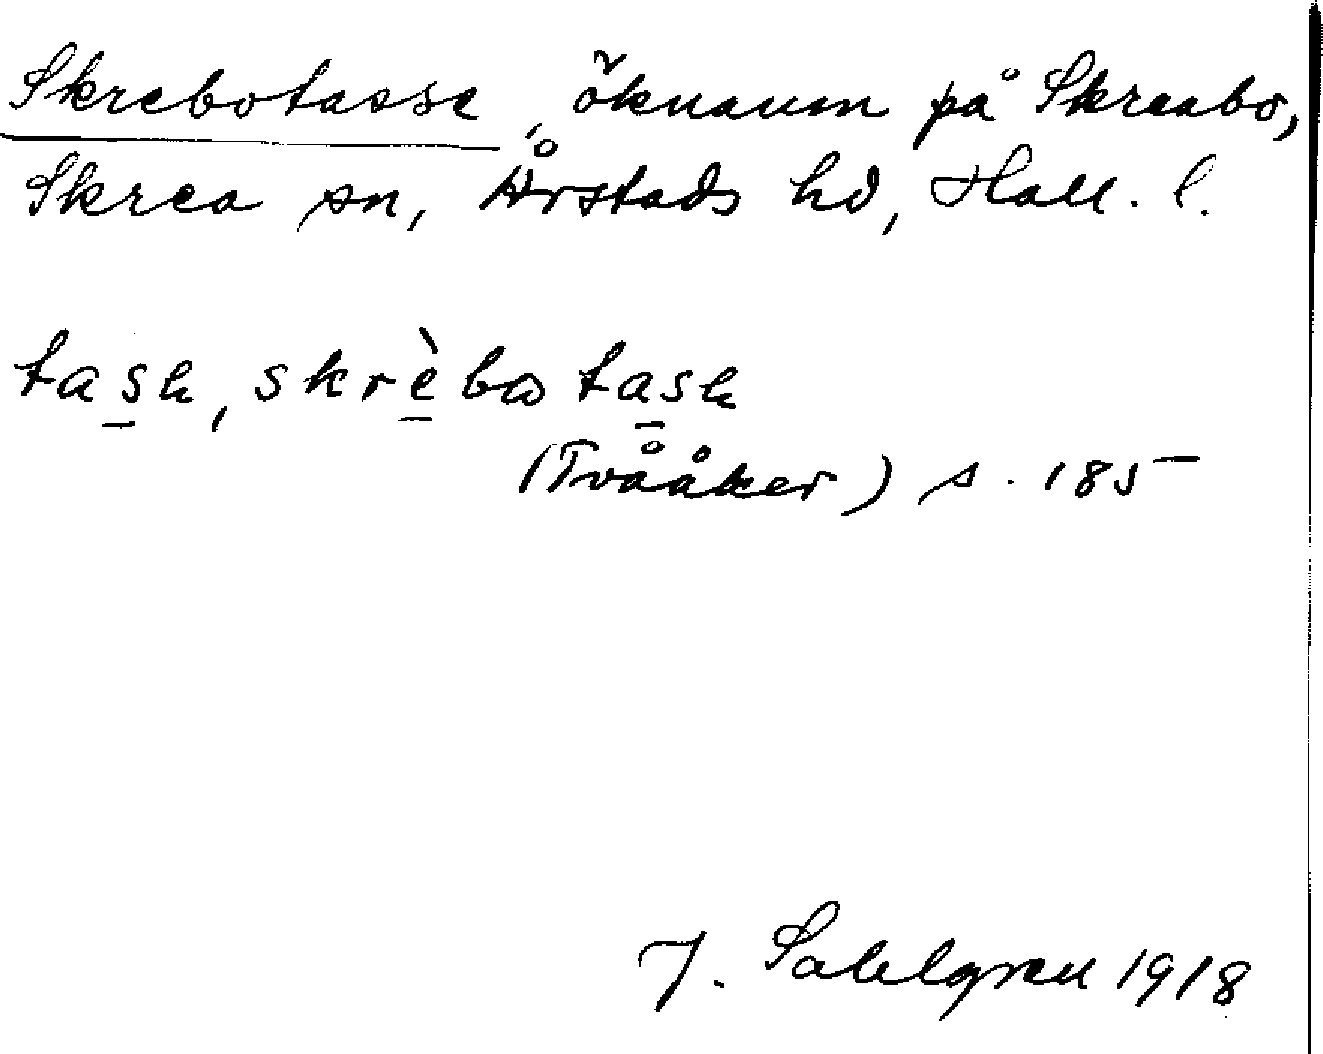 Skrebotasse, öknamn på Skreabo,
Skrea sn, Årstads hd, Hall. l.
tasə, skrèbω tasə
(Tvååker) s. 185
J. Sahlgren 1918